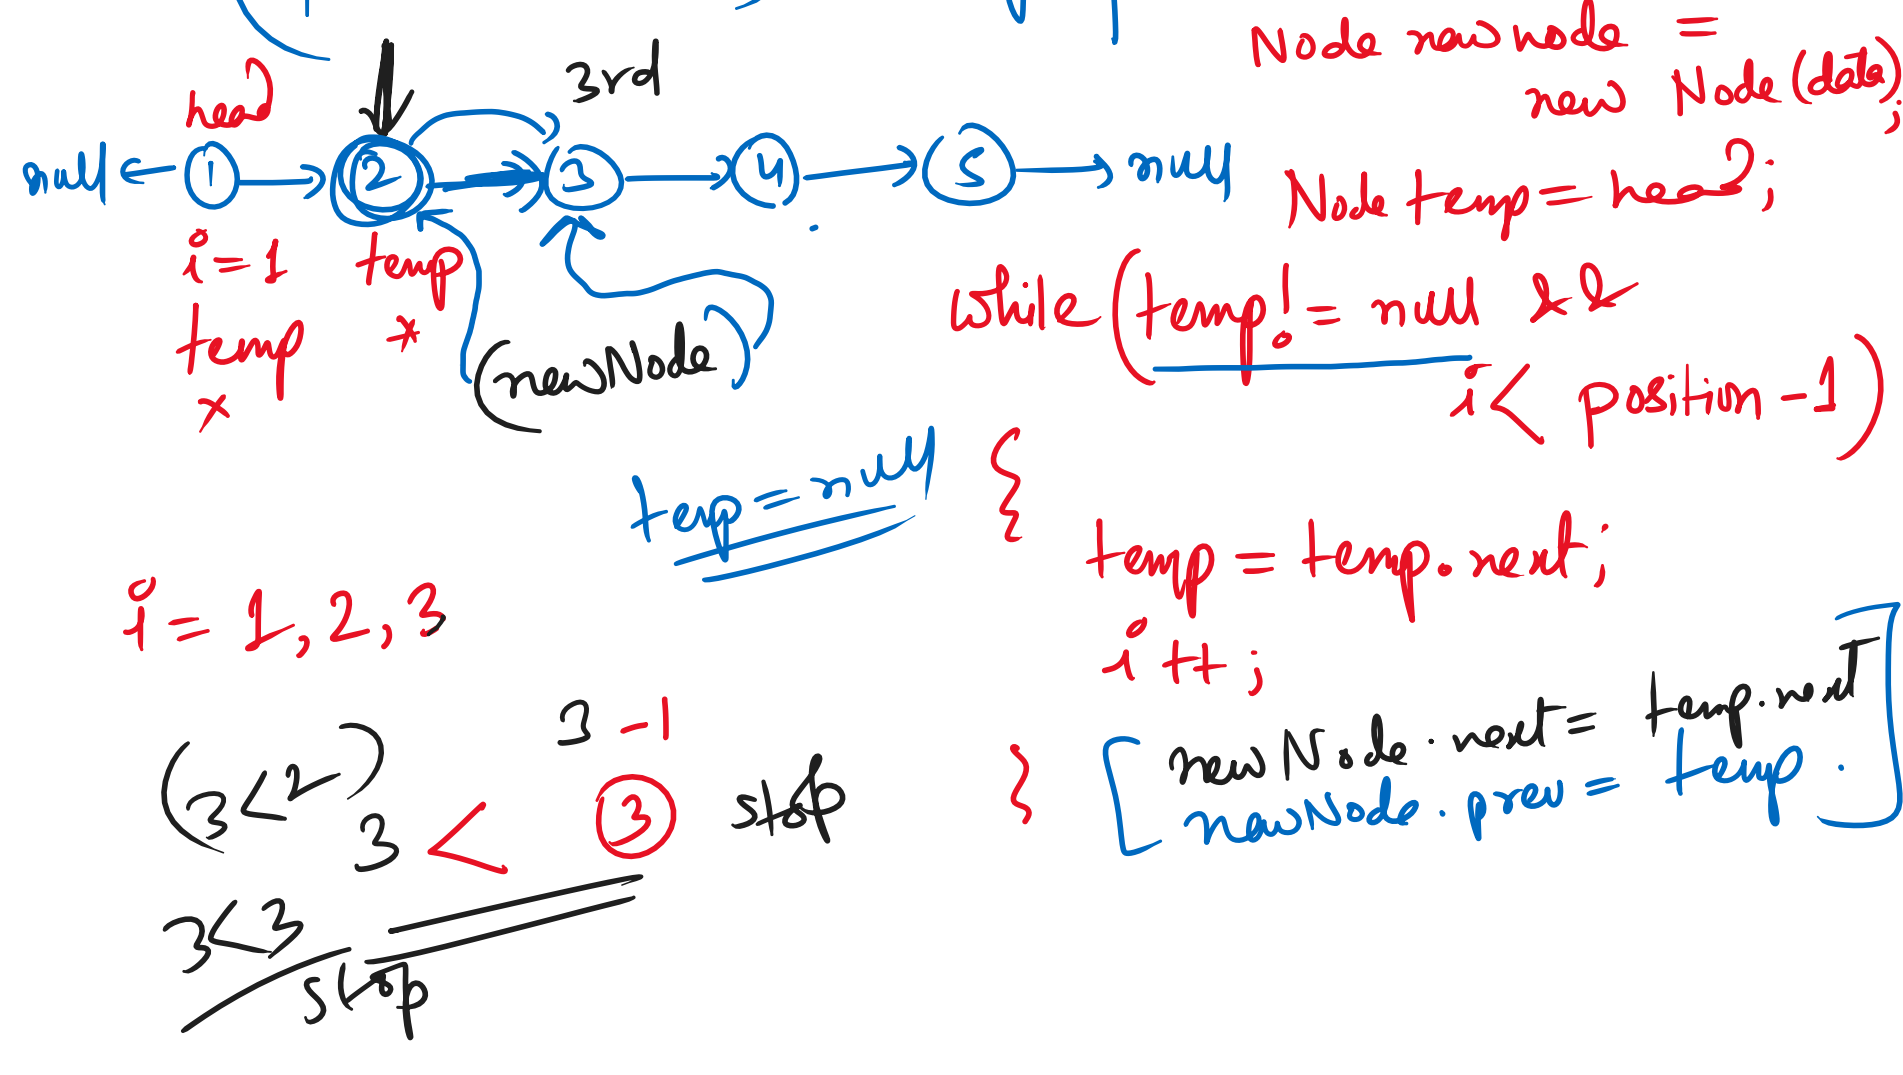 head
3rd
null ← 1 → 2 → 3 → 4 → 5 → null
i = 1
temp
x
temp
x
(newNode)
temp = null
i = 1, 2, 3
3 - 1
(3 < 2)
3 < 3 stop
3 < 3
stop
Node newnode =
new Node (data);
Node temp = head;
while (temp != null &&
i < position - 1)
{
temp = temp.next;
i ++ ;
}
[ newNode . next = temp . next
newNode . prev = temp . ]